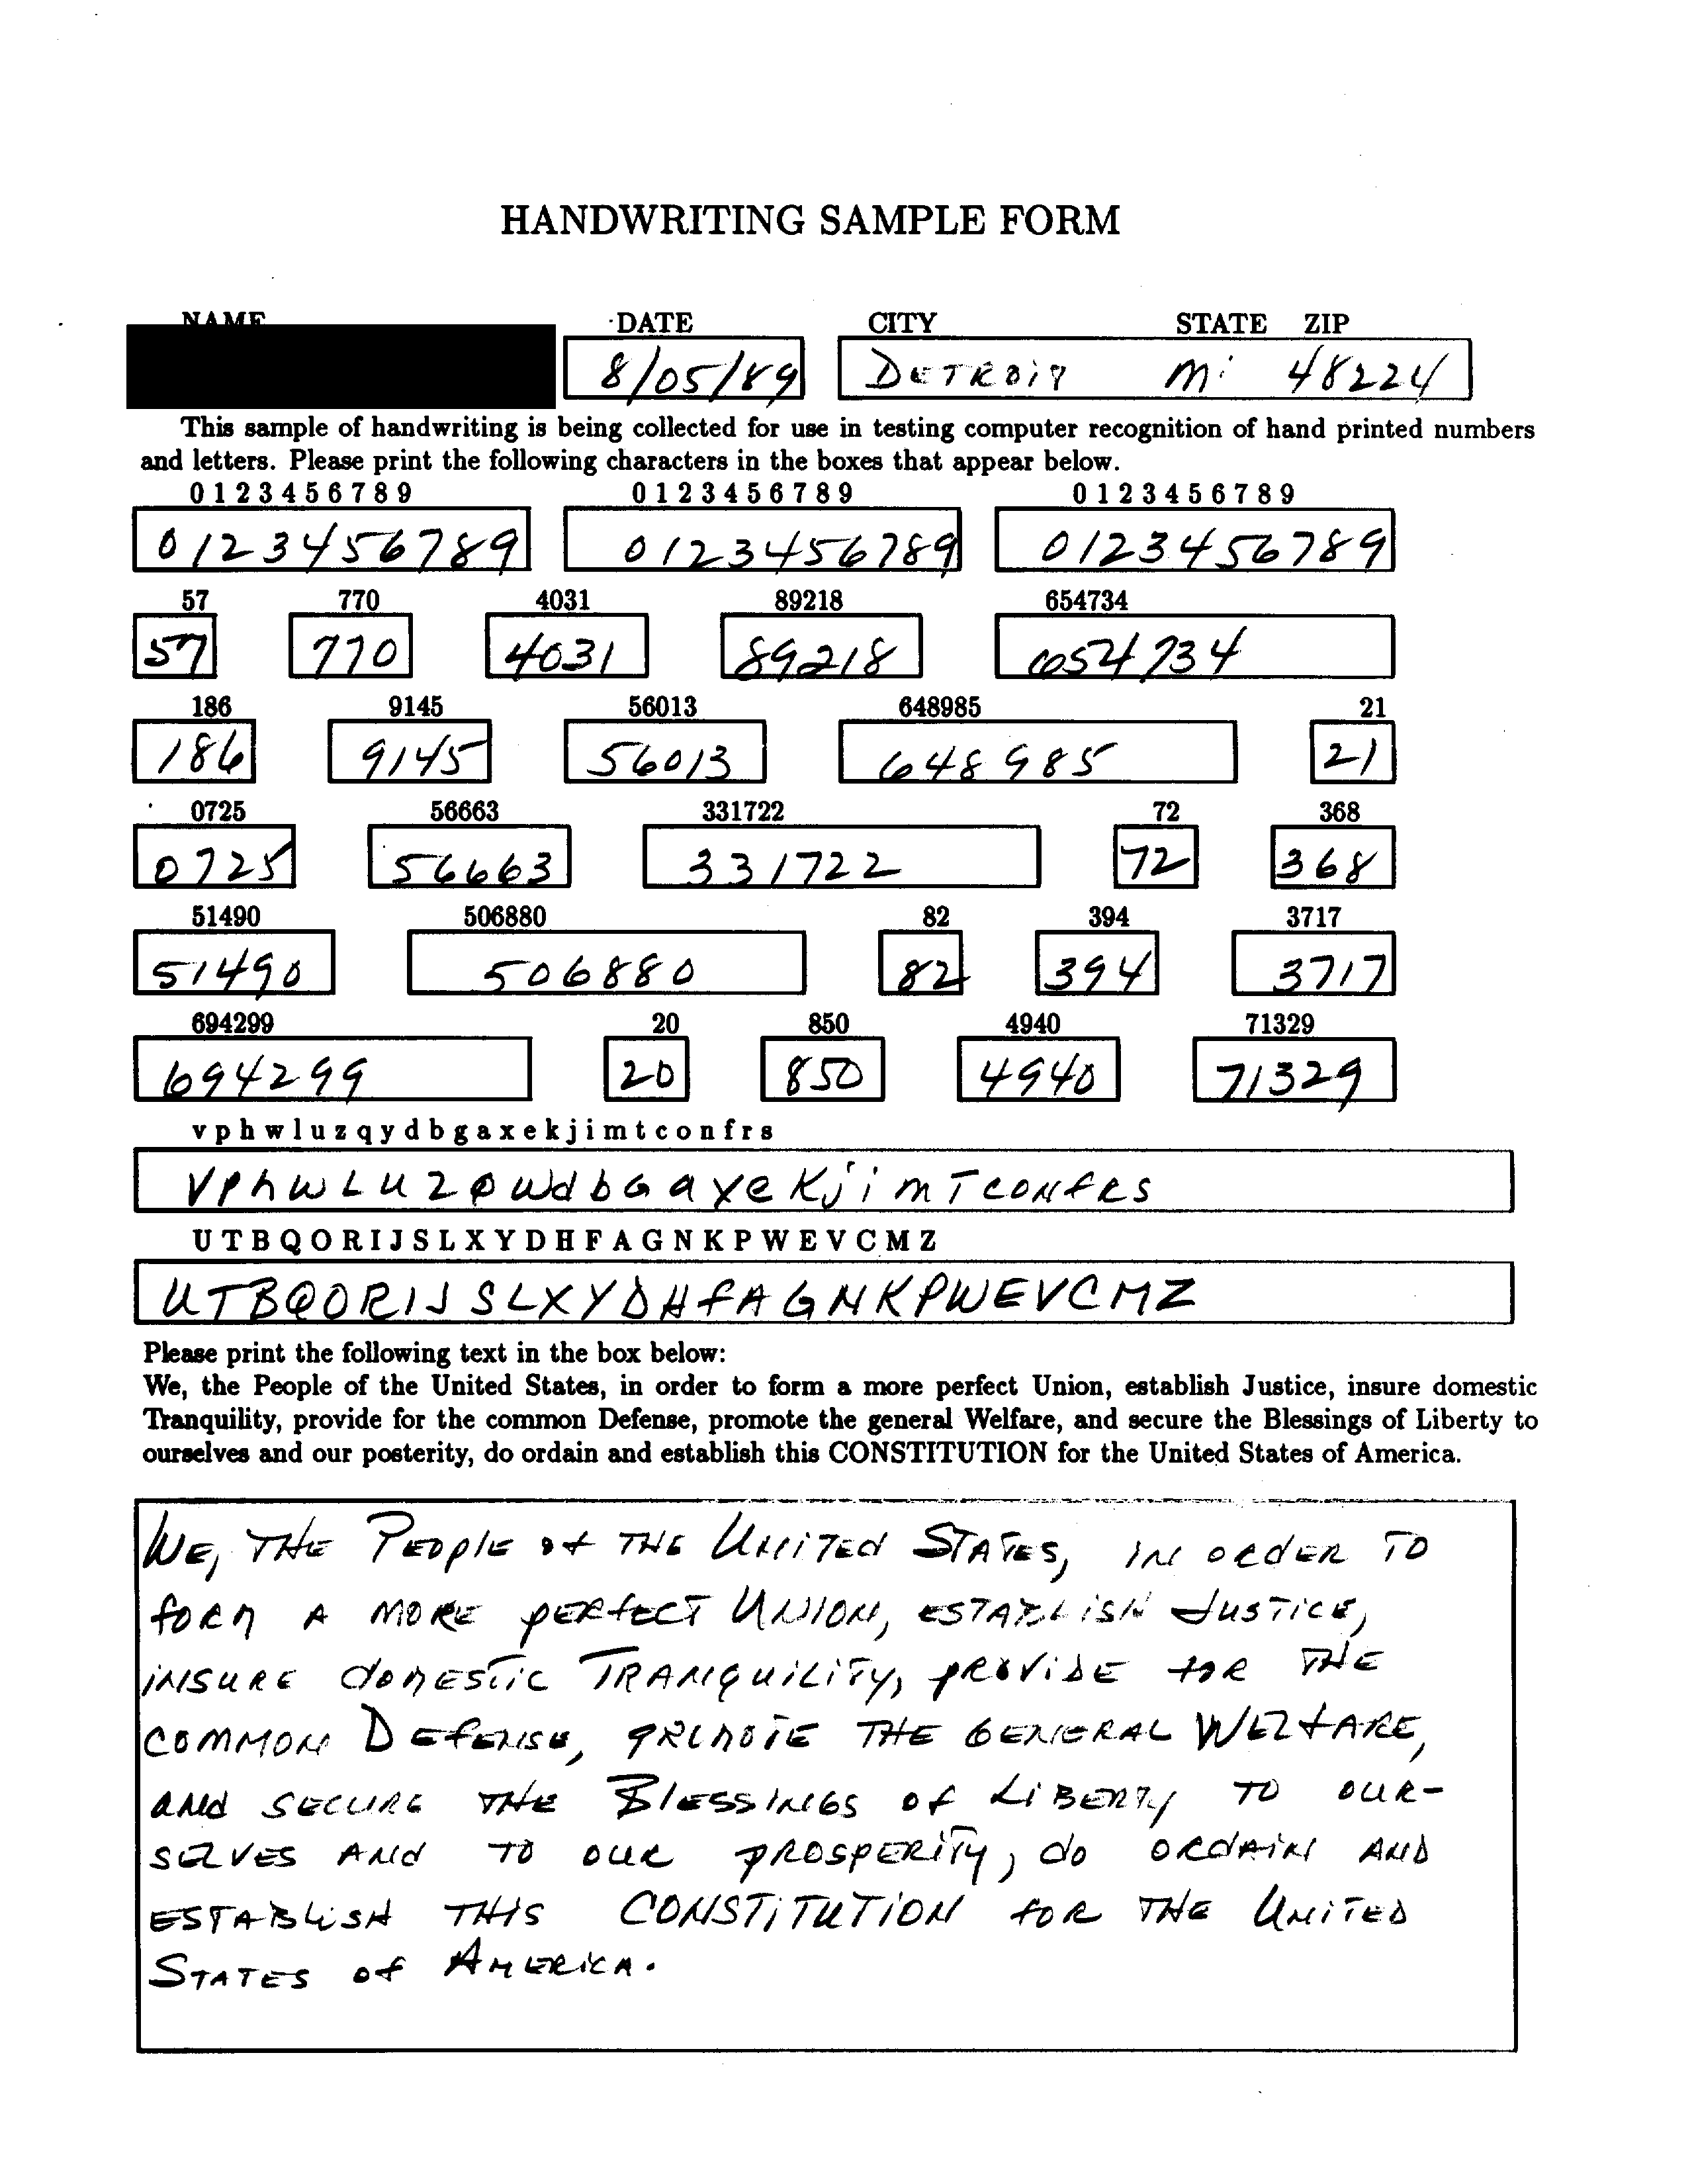 HANDWRITING SAMPLE FORM
NAME DATE CITY STATE ZIP
8/05/89 DETROIT Mi 48224
This sample of handwriting is being collected for use in testing computer recognition of hand printed numbers
and letters. Please print the following characters in the boxes that appear below.
0 1 2 3 4 5 6 7 8 9 0 1 2 3 4 5 6 7 8 9 0 1 2 3 4 5 6 7 8 9
0123456789 0123456789 0123456789
57 770 4031 89218 654734
57 770 4031 89218 654734
186 9145 56013 648985 21
186 9145 56013 648985 21
0725 56663 331722 72 368
0725 56663 331722 72 368
51490 506880 82 394 3717
51490 506880 82 394 3717
694299 20 850 4940 71329
694299 20 850 4940 71329
v p h w l u z q y d b g a x e k j i m t c o n f r s
VPhWLUZQWdbGaXeKjimTCONfRS
U T B Q O R I J S L X Y D H F A G N K P W E V C M Z
UTBQORIJSLXYDHfAGNKPWEVCMZ
Please print the following text in the box below:
We, the People of the United States, in order to form a more perfect Union, establish Justice, insure domestic
Tranquility, provide for the common Defense, promote the general Welfare, and secure the Blessings of Liberty to
ourselves and our posterity, do ordain and establish this CONSTITUTION for the United States of America.
WE, THE PEOplE Of THE UNiTEd STATES, IN ORdER TO
fORM A MORE pERfECT UNION, ESTABLiSH JUSTiCE,
iNSURE dOMESTiC TRANQUiLiTy, pROViDE fOR THE
COMMON DEfENSE, pROMOTE THE GENERAL WELfARE,
ANd SECURE THE BlESSiNGS Of LiBERTy TO OUR-
SELVES ANd TO OUR pROSpERiTy, dO ORdAiN AND
ESTABLiSH THiS CONSTiTUTiON fOR THE UNiTED
STATES Of AMERiCA.